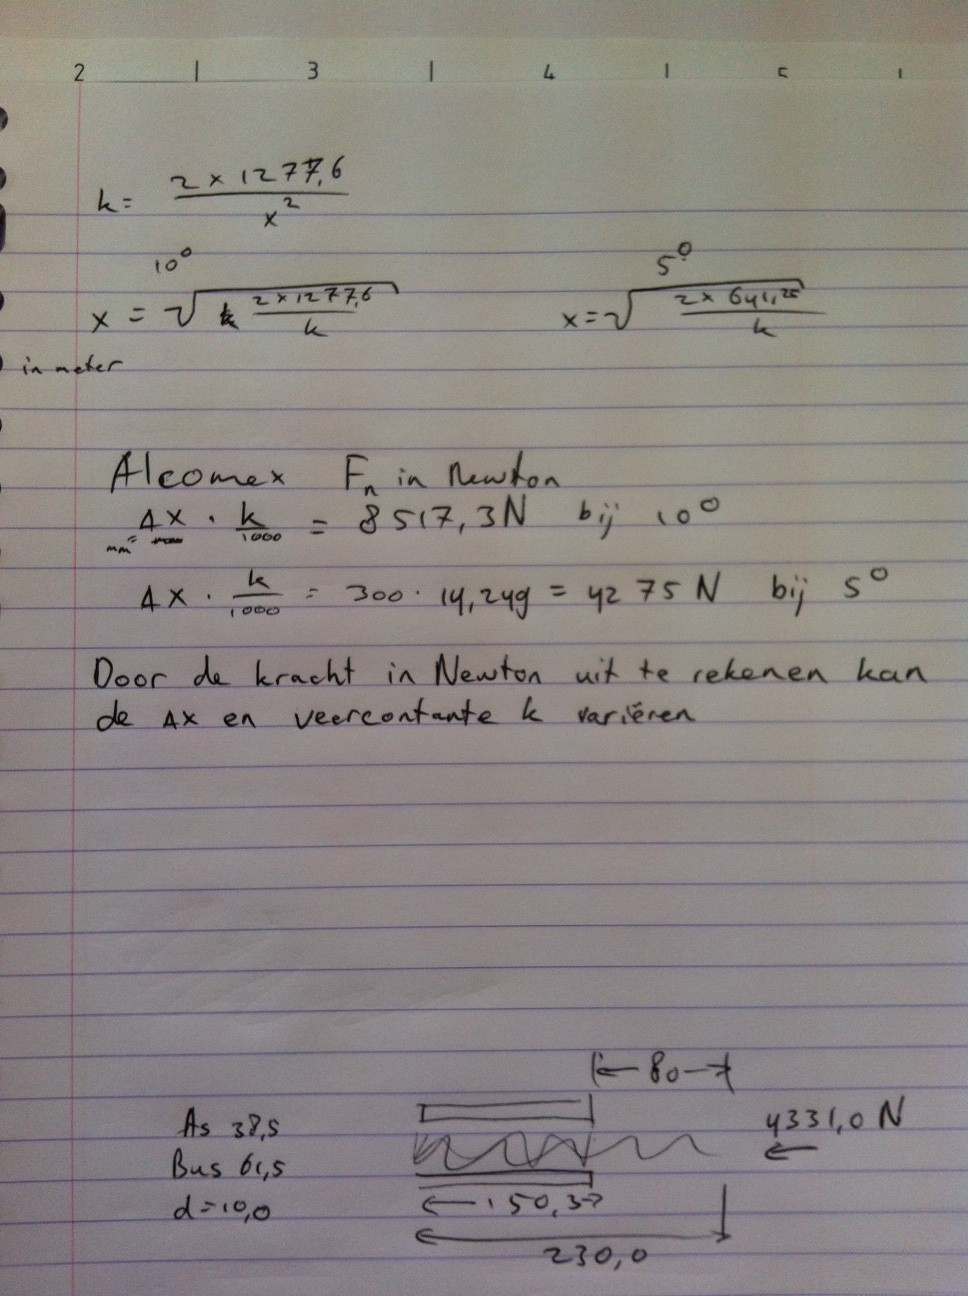 2 | 3 | 4 | 5 |
k = 2 × 1277,6 / x²
10° 5°
x = √ 2×1277,6 / k x = √ 2 × 641,25 / k
in meter
Alcomex Fn in Newton
Δx · k/1000 = 8517,3N bij 10°
mm
Δx · k/1000 = 300 · 14,249 = 4275 N bij 5°
Door de kracht in Newton uit te rekenen kan
de Δx en veercontante k variëren
80
As 38,5 4331,0 N
Bus 61,5
d=10,0 150,3
230,0